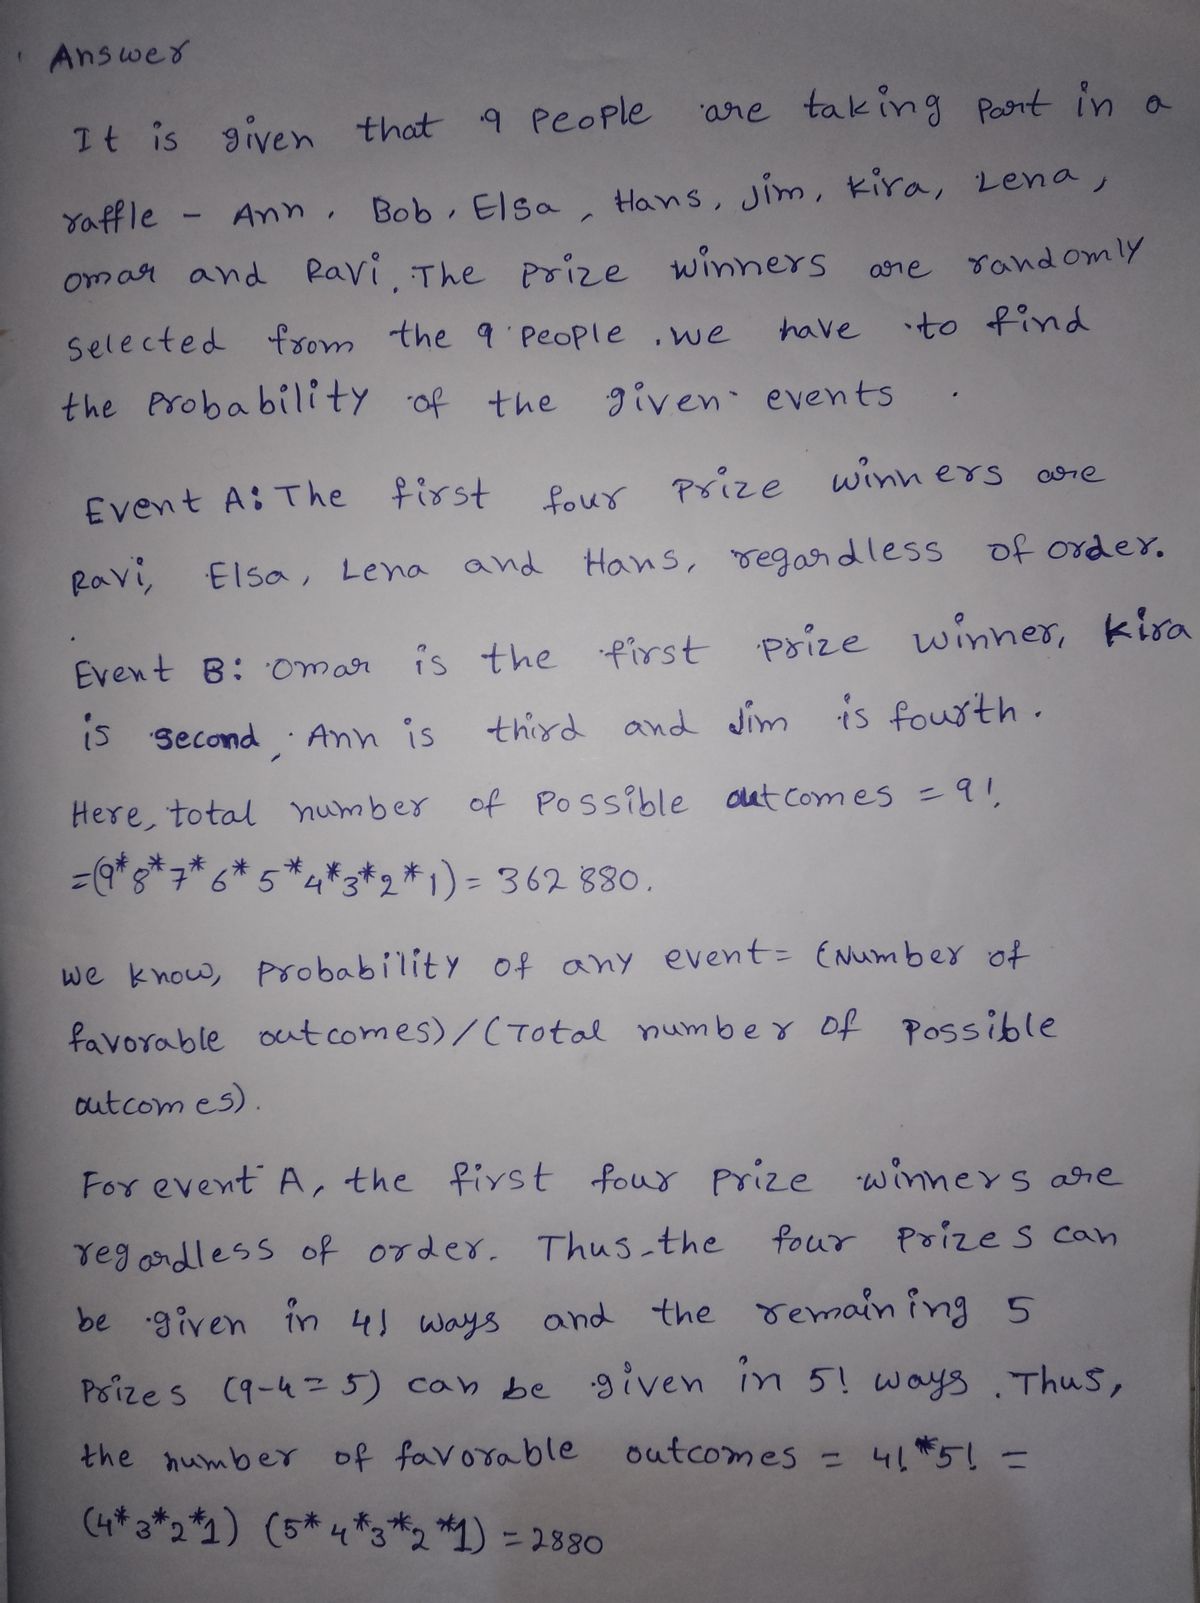 Answer
It is given that 9 people are taking part in a
raffle - Ann, Bob, Elsa, Hans, Jim, Kira, Lena,
Omar and Ravi. The prize winners are randomly
selected from the 9 people. we have to find
the probability of the given events.
Event A: The first four prize winners are
Ravi, Elsa, Lena and Hans, regardless of order.
Event B: Omar is the first prize winner, Kira
is second, Ann is third and Jim is fourth.
Here, total number of possible outcomes = 9!
=(9*8*7*6*5*4*3*2*1) = 362880.
we know, probability of any event = (Number of
favorable outcomes)/(Total number of possible
outcomes).
For event A, the first four prize winners are
regardless of order. Thus the four prizes can
be given in 4! ways and the remaining 5
prizes (9-4=5) can be given in 5! ways. Thus,
the number of favorable outcomes = 4!*5! =
(4*3*2*1) (5*4*3*2*1) = 2880